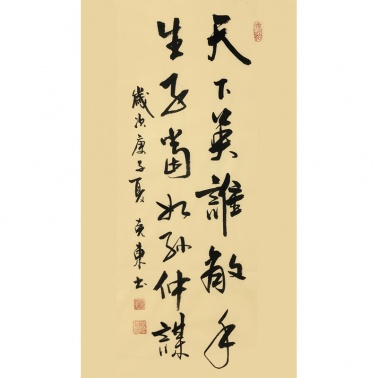 天下英誰敵手
生子當如孫仲謀
歲次庚子夏克東书